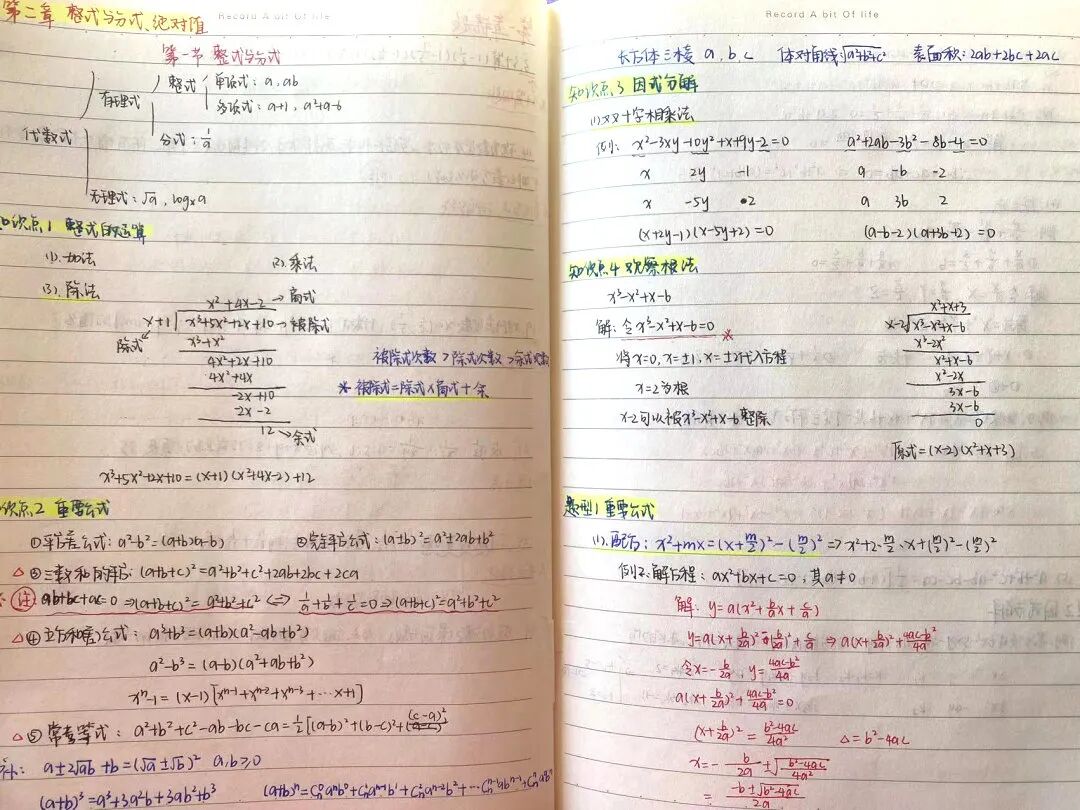 第二章 整式与分式、绝对值
第一节 整式与分式
代数式
有理式
整式
单项式：a, ab
多项式：a+1, a²+a-b
分式：1/a
无理式：√a, logₓa
知识点1 整式的运算
(1).加法 (2).乘法
(3).除法
x²+4x-2 → 商式
x+1 x³+5x²+2x+10 → 被除式
除式
x³+x²
4x²+2x+10
4x²+4x
-2x+10
-2x-2
12 → 余式
被除式次数>除式次数>余式次数
* 被除式=除式×商式+余
x³+5x²+2x+10=(x+1)(x²+4x-2)+12
知识点2 重要公式
①平方差公式：a²-b²=(a+b)(a-b) ②完全平方公式：(a±b)²=a²±2ab+b²
△③三数和的平方：(a+b+c)²=a²+b²+c²+2ab+2bc+2ca
注：ab+bc+ac=0 ⇒(a+b+c)²=a²+b²+c² ⟺ 1/a+1/b+1/c=0⇒(a+b+c)²=a²+b²+c²
△④立方和(差)公式：a³+b³=(a+b)(a²-ab+b²)
a²-b³=(a-b)(a²+ab+b²)
xⁿ-1=(x-1)[xⁿ⁻¹+xⁿ⁻²+xⁿ⁻³+…x+1]
△⑤常考等式：a²+b²+c²-ab-bc-ca=½[(a-b)²+(b-c)²+(c-a)²]
补：a±2√ab+b=(√a±√b)² a,b≥0
(a+b)³=a³+3a²b+3ab²+b³ (a+b)ⁿ=
Record A bit Of life
长方体三棱 a, b, c 体对角线:√a²+b²+c² 表面积:2ab+2bc+2ac
知识点3 因式分解
(1)双十字相乘法
例: x²-3xy-10y²+x+9y-2=0 a²+2ab-3b²-8b-4=0
x 2y -1 a -b -2
x -5y 2 a 3b 2
(x+2y-1)(x-5y+2)=0 (a-b-2)(a+3b+2)=0
知识点4 观察根法
x³-x²+x-6
解：令x³-x²+x-6=0
将x=0, x=±1, x=±2代入方程
x=2为根
x-2可以被x³-x²+x-6整除
x²+x+3
x-2 x³-x²+x-6
x³-2x²
x²+x-6
x²-2x
3x-6
3x-6
0
原式=(x-2)(x²+x+3)
题型1 重要公式
(1).配方：x²+mx=(x+m/2)²-(m/2)²⇒x²+2·m/2·x+(m/2)²-(m/2)²
例2:解方程：ax²+bx+c=0，其a≠0
解：y=a(x²+b/a x+c/a)
y=a(x+b/2a)²-(b/2a)²+c/a ⇒ a(x+b/2a)²+4ac-b²/4a
令x=-b/2a, y=4ac-b²/4a
a(x+b/2a)²+4ac-b²/4a=0
(x+b/2a)²=b²-4ac/4a² △=b²-4ac
x=-b/2a±√b²-4ac/4a²
=-b±√b²-4ac/2a